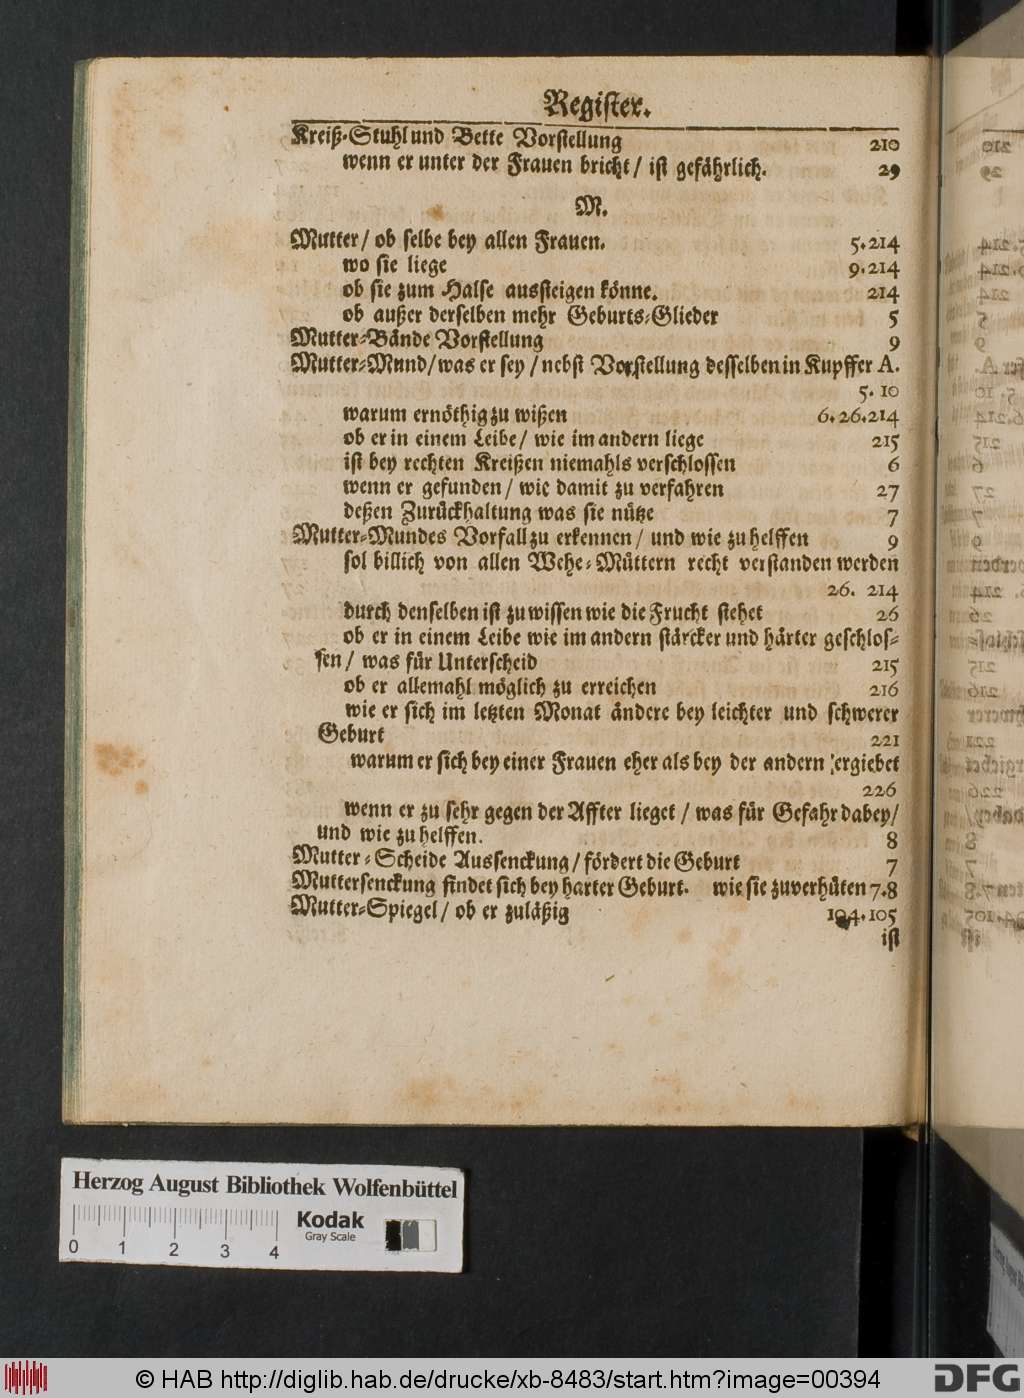 Register.
Kreiß-Stuhl und Bette Vorstellung 210
wenn er unter der Frauen bricht / ist gefährlich. 29
M.
Mutter / ob selbe bey allen Frauen. 5.214
wo sie liege 9.214
ob sie zum Halse aussteigen könne. 214
ob außer derselben mehr Geburts-Glieder 5
Mutter-Bände Vorstellung 9
Mutter-Mund / was er sey / nebst Vorstellung desselben in Kupffer A.
5. 10
warum er nöthig zu wißen 6.26.214
ob er in einem Leibe / wie im andern liege 215
ist bey rechten Kreißen niemahls verschlossen 6
wenn er gefunden / wie damit zu verfahren 27
deßen Zurückhaltung was sie nütze 7
Mutter-Mundes Vorfall zu erkennen / und wie zu helffen 9
sol billich von allen Wehe-Müttern recht verstanden werden
26. 214
durch denselben ist zu wissen wie die Frucht stehet 26
ob er in einem Leibe wie im andern stärcker und härter geschlos-
sen / was für Unterscheid 215
ob er allemahl möglich zu erreichen 216
wie er sich im letzten Monat ändere bey leichter und schwerer
Geburt 221
warum er sich bey einer Frauen eher als bey der andern ergiebet
226
wenn er zu sehr gegen der Affter lieget / was für Gefahr dabey /
und wie zu helffen. 8
Mutter-Scheide Aussenckung / fördert die Geburt 7
Muttersenckung findet sich bey harter Geburt. wie sie zuverhüten 7.8
Mutter-Spiegel / ob er zuläßig 104.105
ist
Herzog August Bibliothek Wolfenbüttel
Kodak
Gray Scale
0 1 2 3 4
© HAB http://diglib.hab.de/drucke/xb-8483/start.htm?image=00394
DFG